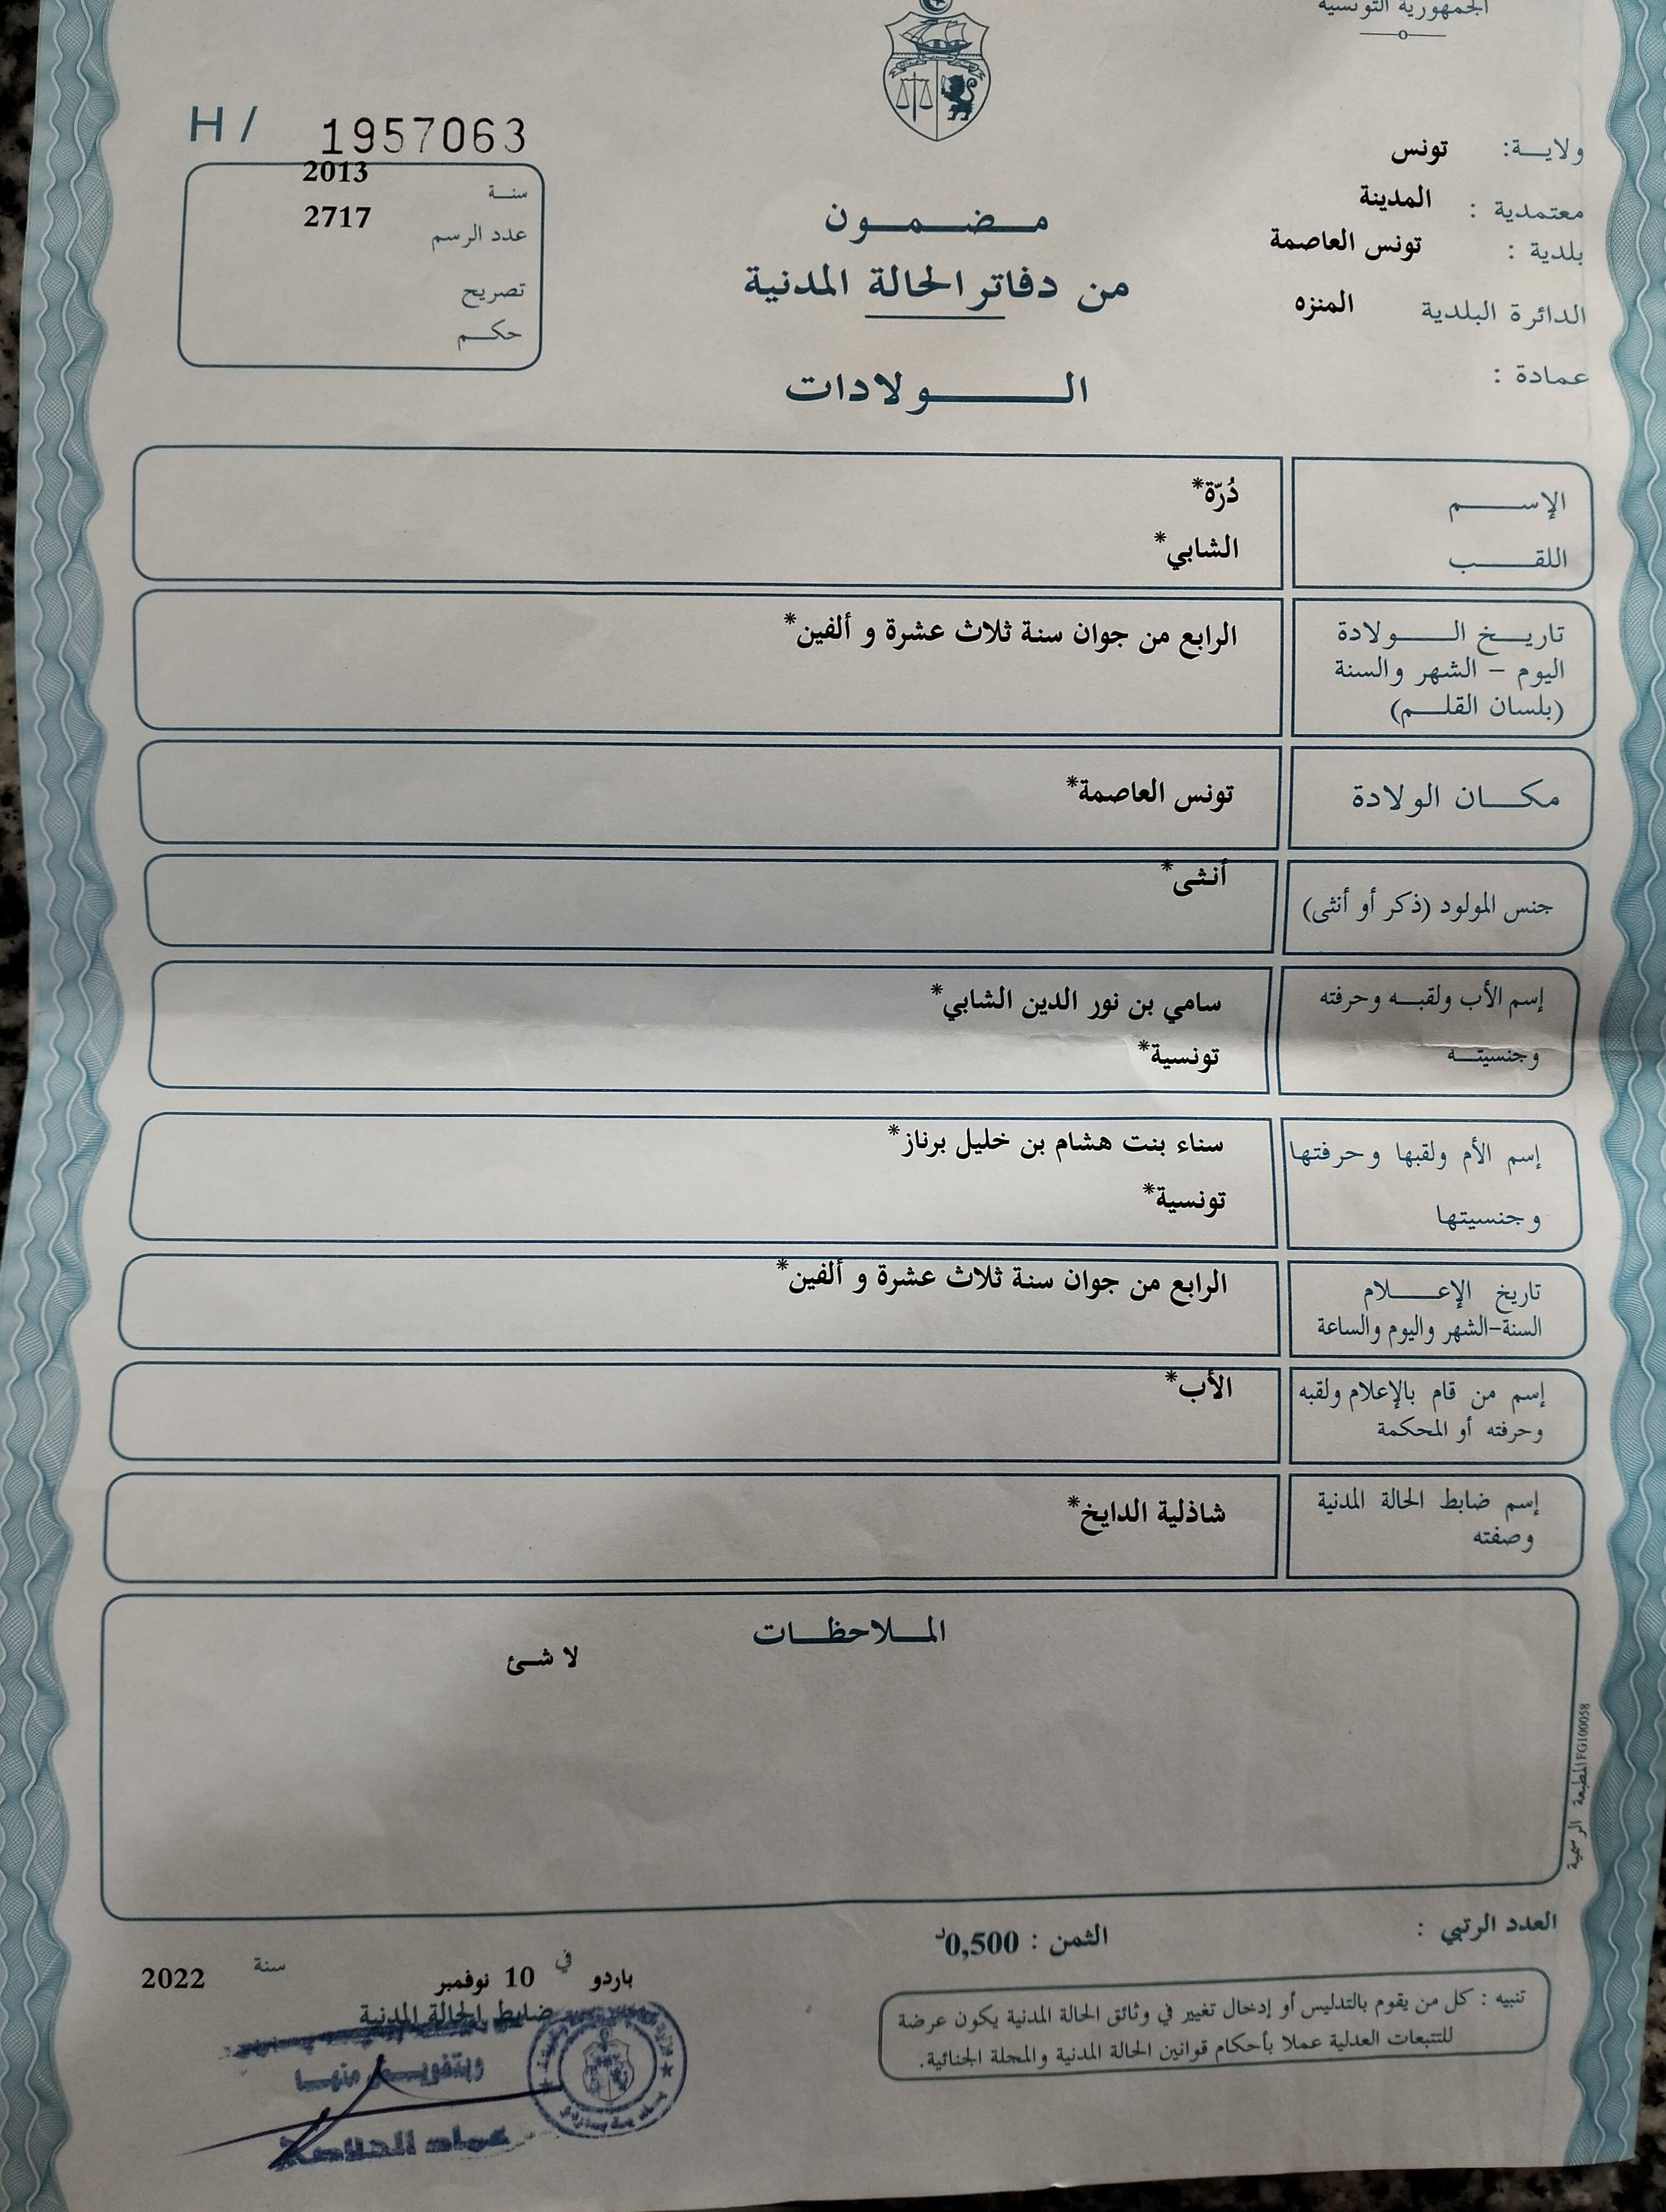 الجمهورية التونسية
ولاية: تونس
معتمدية : المدينة
بلدية : تونس العاصمة
الدائرة البلدية المنزه
عمادة :
H / 1957063
سنة 2013
عدد الرسم 2717
تصريح
حكم
مضمون
من دفاتر الحالة المدنية
الولادات
الإسم دُرّة*
اللقب الشابي*
تاريخ الولادة الرابع من جوان سنة ثلاث عشرة و ألفين*
اليوم - الشهر والسنة
(بلسان القلم)
مكان الولادة تونس العاصمة*
جنس المولود (ذكر أو أنثى) أنثى*
إسم الأب ولقبه وحرفته سامي بن نور الدين الشابي*
وجنسيته تونسية*
إسم الأم ولقبها وحرفتها سناء بنت هشام بن خليل برناز*
وجنسيتها تونسية*
تاريخ الإعلام الرابع من جوان سنة ثلاث عشرة و ألفين*
السنة-الشهر واليوم والساعة
إسم من قام بالإعلام ولقبه الأب*
وحرفته أو المحكمة
إسم ضابط الحالة المدنية شاذلية الدايخ*
وصفته
الملاحظات
لا شئ
المطبعة الرسمية FG100058
العدد الرتبي :
الثمن : 0,500د
تنبيه : كل من يقوم بالتدليس أو إدخال تغيير في وثائق الحالة المدنية يكون عرضة
للتتبعات العدلية عملا بأحكام قوانين الحالة المدنية والمجلة الجنائية.
باردو في 10 نوفمبر سنة 2022
ضابط الحالة المدنية
وبتفويض منها
عماد